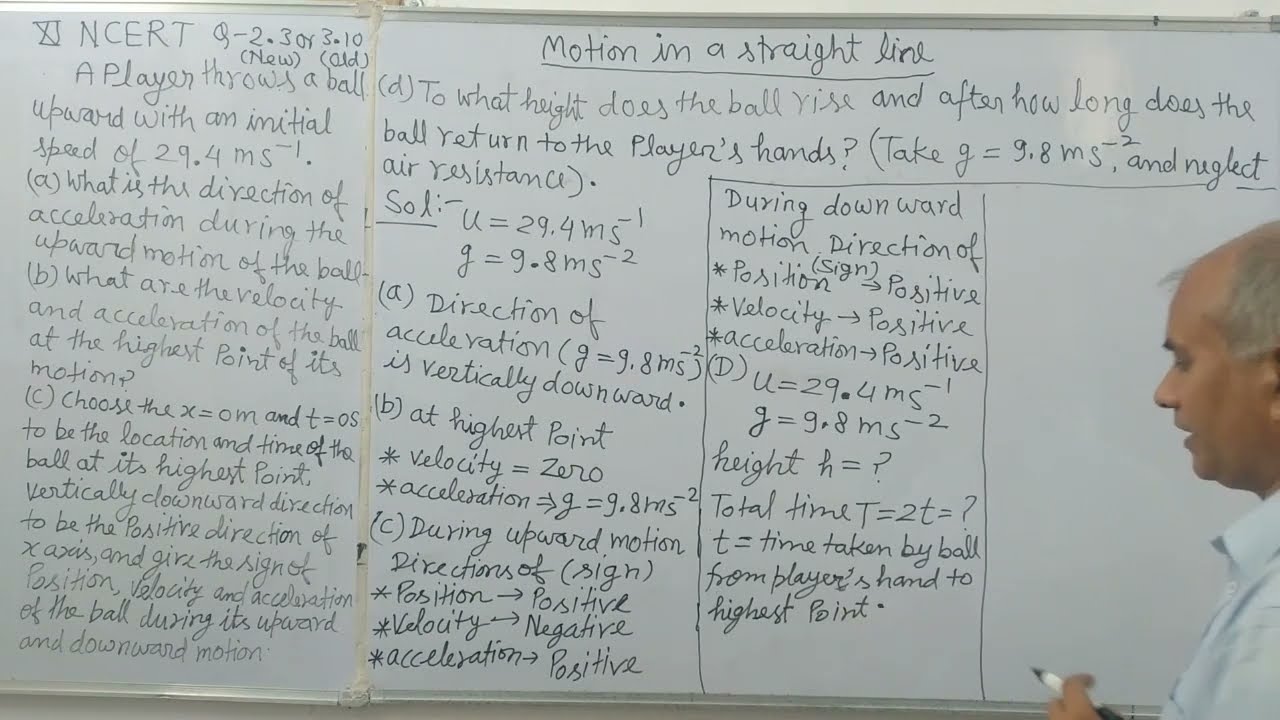 XI NCERT Q-2.3 or 3.10
(New) (Old)
A Player throws a ball
upward with an initial
speed of 29.4 ms⁻¹.
(a) What is ths direction of
acceleration during the
upward motion of the ball-
(b) What are the velocity
and acceleration of the ball
at the highest Point of its
motion?
(c) Choose the x=0m and t=0s
to be the location and time of the
ball at its highest Point,
vertically downward direction
to be the Positive direction of
x axis, and give the sign of
Position, velocity and acceleration
of the ball during its upward
and downward motion.
Motion in a straight line
(d) To what height does the ball rise and after how long does the
ball return to the Player's hands? (Take g = 9.8 ms⁻², and neglect
air resistance).
Sol:-
u = 29.4 ms⁻¹
g = 9.8 ms⁻²
(a) Direction of
acceleration (g = 9.8 ms⁻²)
is vertically downward.
(b) at highest Point
* velocity = Zero
* acceleration ⇒ g = 9.8 ms⁻²
(C) During upward motion
Directions of (sign)
* Position → Positive
* Velocity → Negative
* acceleration → Positive
During downward
motion Direction of
(sign)
* Position → Positive
* Velocity → Positive
* acceleration → Positive
(D) u = 29.4 ms⁻¹
g = 9.8 ms⁻²
height h = ?
Total time T = 2t = ?
t = time taken by ball
from player's hand to
highest Point.